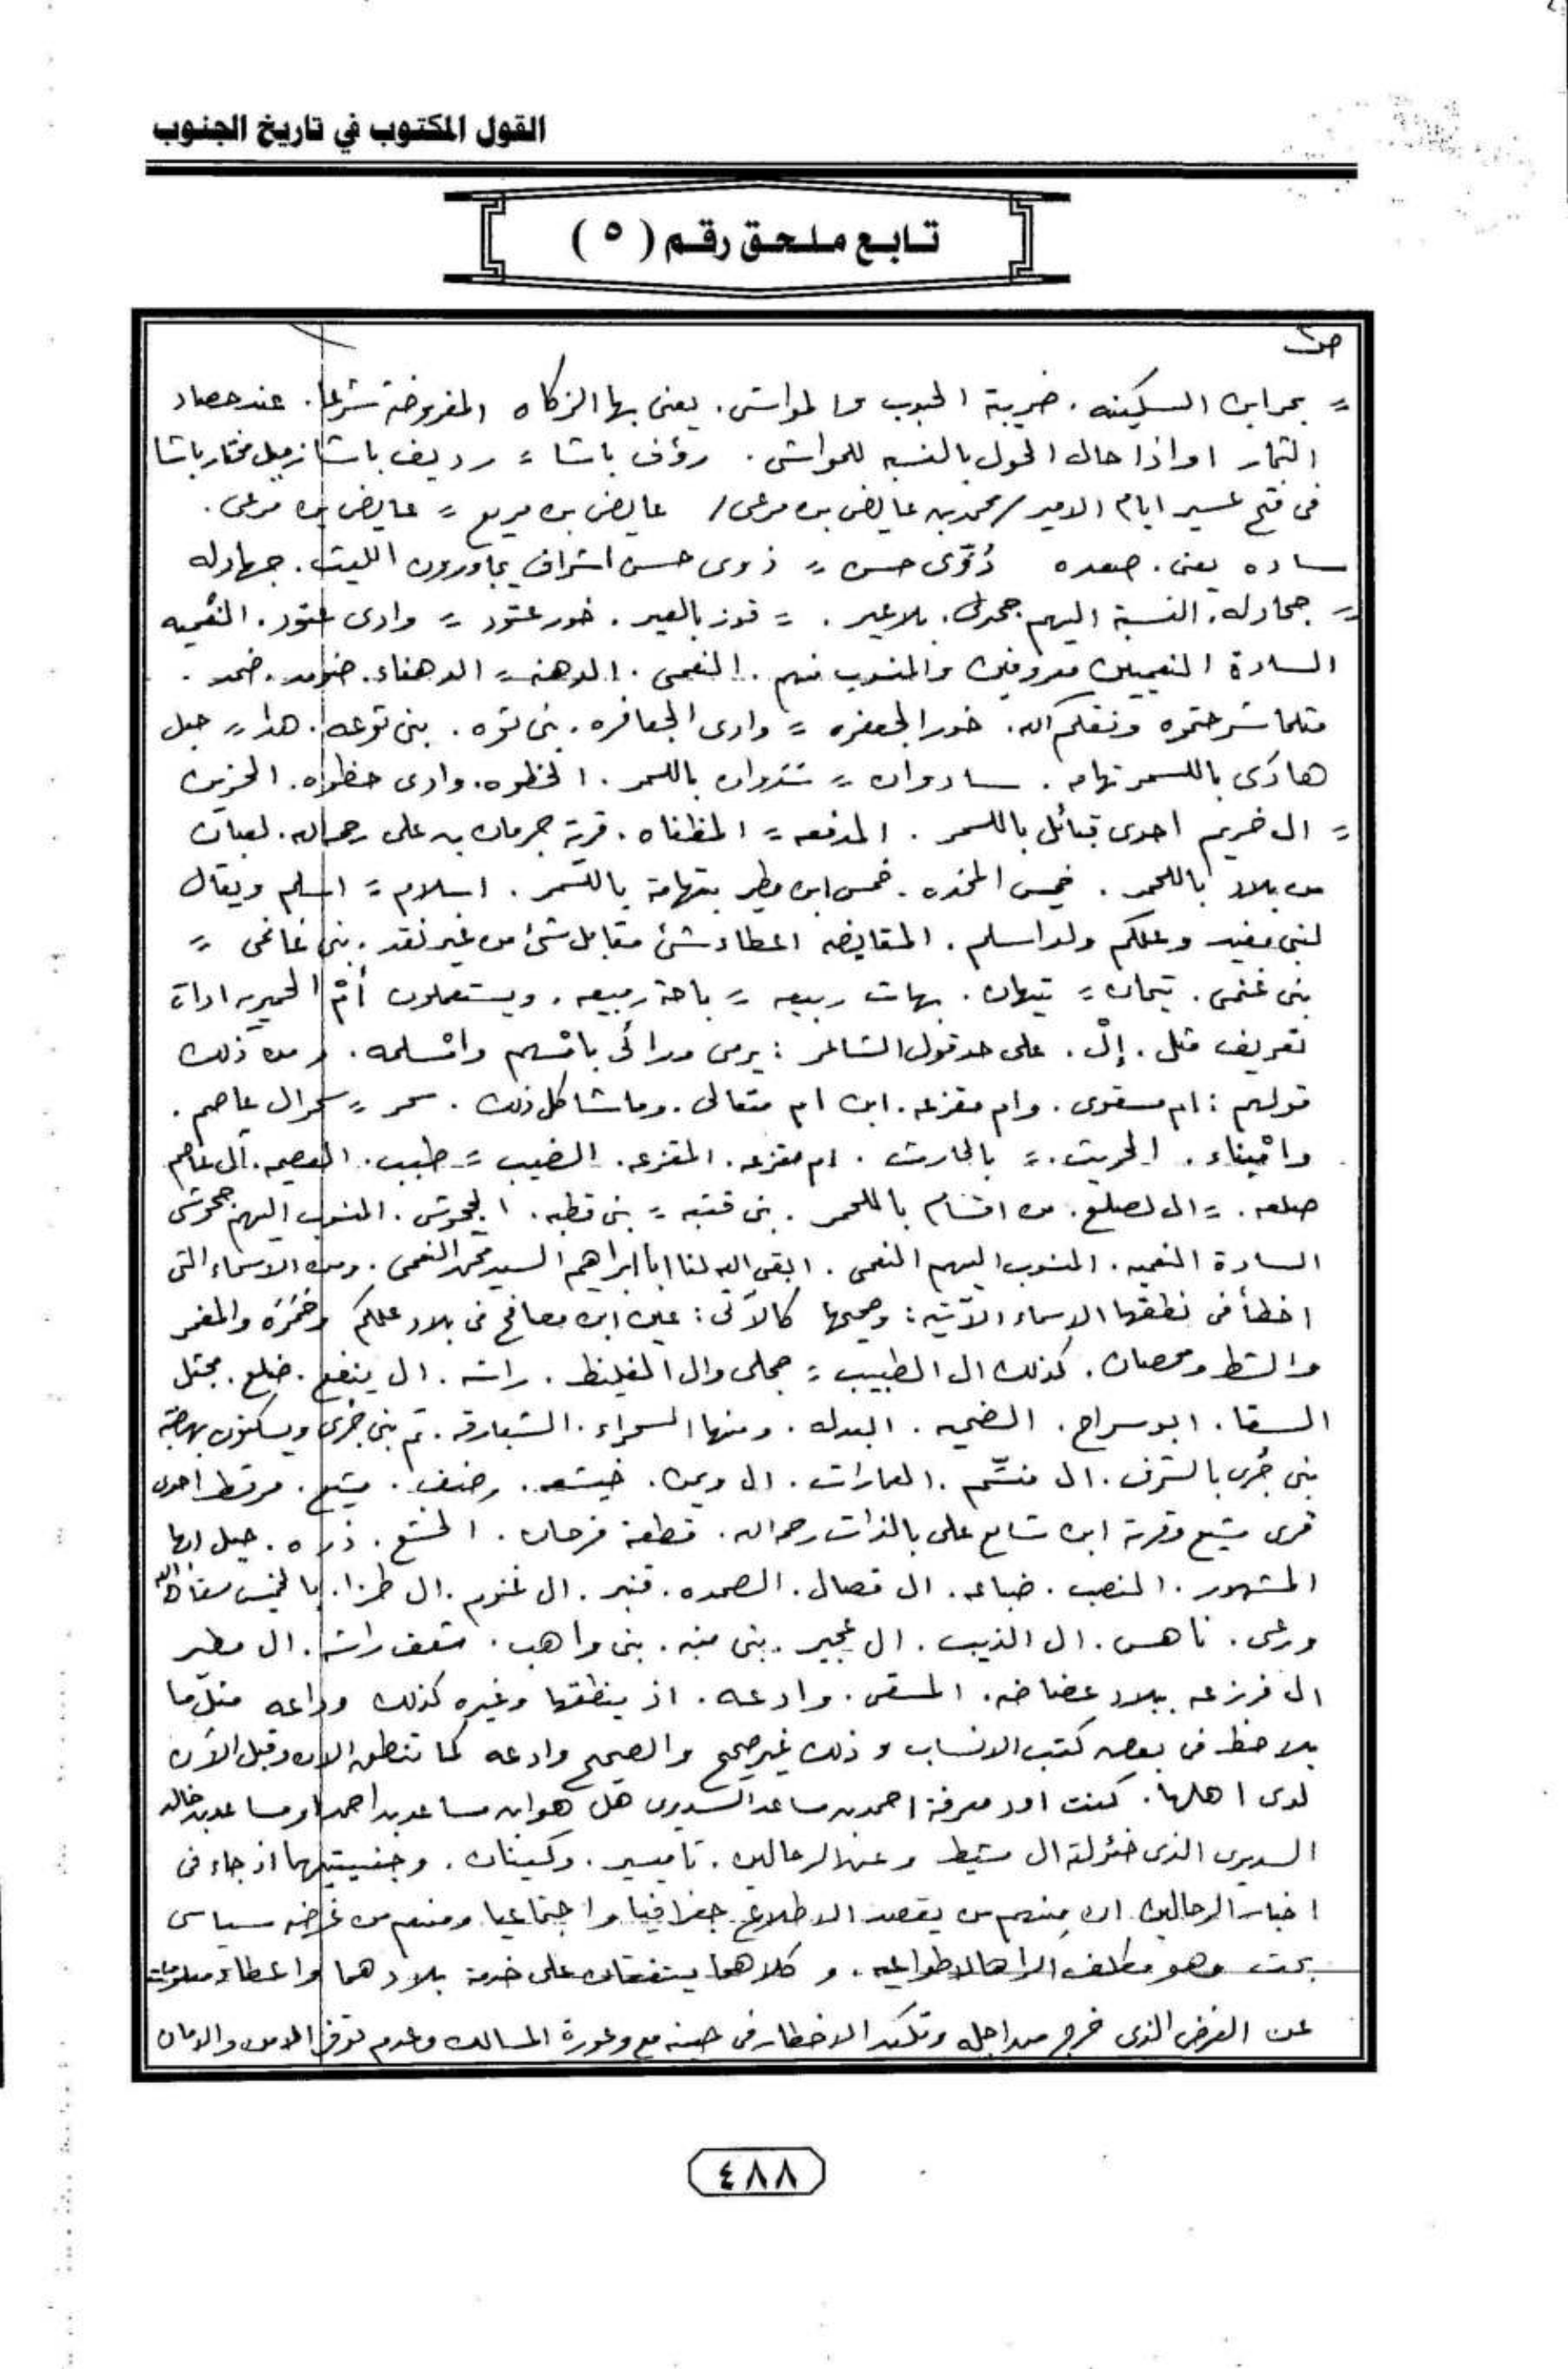 القول المكتوب في تاريخ الجنوب
تابع ملحق رقم (٥)
= بحر ابن السكينه. ضريبة الحبوب والمواشى. يعنى بها الزكاه المفروضة شرعا. عند حصاد
الثمار او اذا حال الحول بالنسبه للمواشى. رؤف باشا = رديف باشا زميل مختار باشا
فى فتح عسير ايام الامير / محمد بن عايض بن مرعى / عايض بن مريع = عايض بن مرعى.
ساده يعنى. صعده ذُوّى حسن = ذوى حسن اشراف يجاورون الليث. جهادله
= جحادله. النسبة اليهم جحدلى. بلاعير. = قوز بالعير. خور عتود = وادى عتود. النُعميه
السادة النعميين معروفين والمنسوب منهم. النعمى. الدهنه = الدهناء. ضمد.
مثلما شرحتموه ونقلكم اله. خور الجعفره = وادى الجعافره. بنى ثوه. بنى ثوعه. هدا = جبل
هادى باللسمر تهامه. سادوان = سدوان باللسمر. الخطوه. وادى خطوه. الخزيم
= ال خريم احدى قبائل باللسمر. المدفعه = المظفاه. قرية جرمان بن على رحمه اله. لعبان
من بلاد باللحمر. خميس المخده. خمس ابن مطير بتهامة باللسمر. اسلام = اسلم ويقال
لبنى مغيد وعلكم ولد اسلم. المقايضه اعطاء شئ مقابل شئ من غير نقد. بنى غانمى =
بنى غنمى. تيحان = تيهان. بهات ربيعه = باحة ربيعه. ويستعملون أمْ الحميريه اداة
تعريف مثل. إلْ. على حد قول الشاعر: يرمى ورائى بامْسهم وامْسلمه. ومن ذلك
قولهم: ام مسقوى. وام مقزعه. ابن ام متعالى. وما شاكل ذلك. سحر = سحر ال عاصم.
وامْيناء. الحريث. = بالحارث. ام مقزعه. المقزعه. الضبيب = طبب. العصيمه. آل عاصم
صلعه. = ال لصلع. من اقسام باللحمر. بنى قتبه = بنى قطبه. الجحوش. المنسوب اليهم جحوشى
السادة النعميه. المنسوب اليهم النعمى. ابقى اله لنا ابا ابراهيم السيد محمد النعمى. ومن الاسماء التى
اخطأ فى نطقها الاسماء الآتيه: وصحتها كالآتى: عين ابن مصافح فى بلاد علكم وخمَرَه والمغمر
والشط ومحصان. كذلك ال الطبيب = محلى وال المغليظ. راشه. ال ينفع. ضلع. محتل
السقا. ابو سراح. الضحيه. البدله. ومنها السمراء. الشبارقه. ثم بنى جُرى ويسكنون بهضبة
بنى جُرى بالشرف. ال منسّم. العمارات. ال ويمن. خيشعه. رضف. يشيع. مرقط احدى
قرى يشيع وقرية ابن شايع على بالذات رحمه اله. قطعة فرحان. الخشع. ذره. جبل ابها
المشهور. المنصب. ضباعه. ال قصال. الصمده. قنبر. ال غنوم. ال طرزا. بالخميس سقاه الله
ورعى. ناهس. ال الذيب. ال عجير. بنى منبه. بنى واهب. شعف راشه. ال مطير
ال فرزعه ببلاد عضاضه. المسقى. وادعه. اذ ينطقها وغيره كذلك وداعه مثل ما
يلاحظ فى بعض كتب الانساب وذلك غير صحيح والصحيح وادعه كما تنطق الان وقبل الآن
لدى اهلها. كنت اود معرفة احمد بن مساعد السديرى هل هو ابن مساعد بن احمد او مساعد بن خالد
السديرى الذى خئولته ال مشيط وعن الرحالين. تاميسر. وكينان. وجنسيتيهما اذ جاء فى
اخبار الرحالين ان منهم من يقصد الاطلاع جغرافيا واجتماعيا ومنهم من غرضه سياسى
بحت وهو مكلف وكلاهما يتفقان على خدمة بلادهما واعطاء معلومات
عن الغرض الذى خرج من اجله وتكبد الاخطار فى حينه مع وعورة المسالك وعدم توفر الامن والامان
٤٨٨